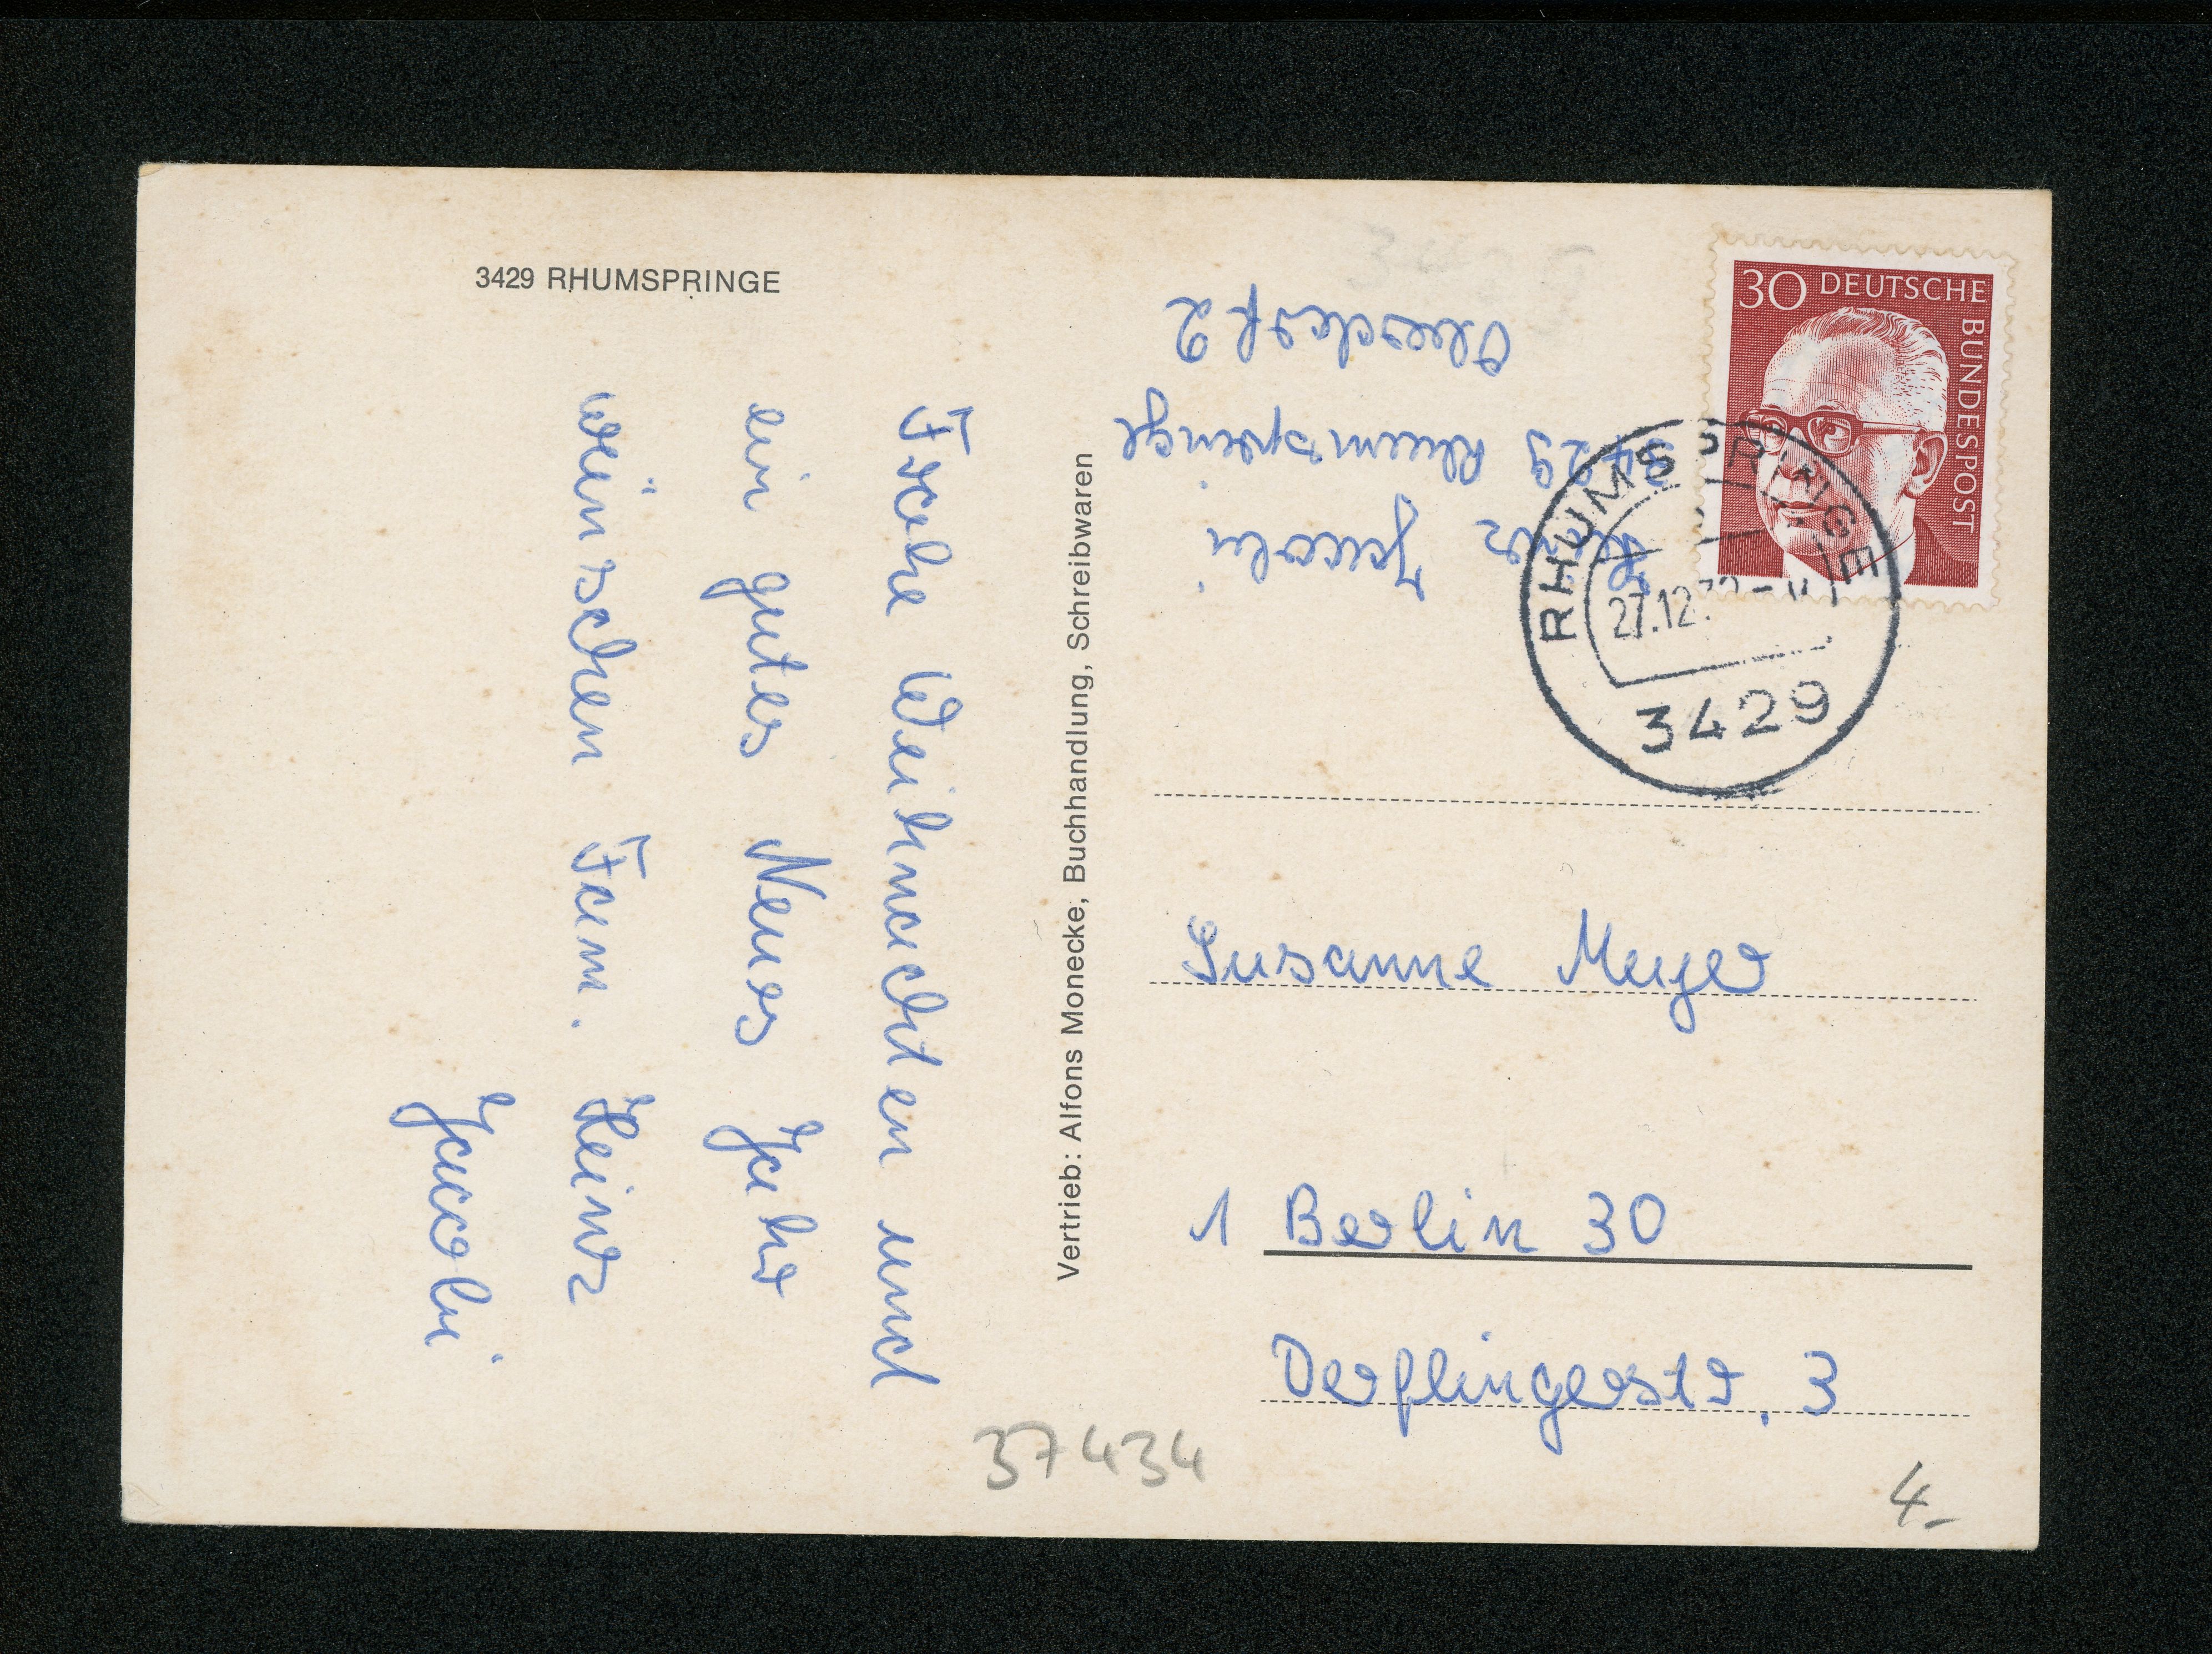 3429 RHUMSPRINGE
Frohe Weihnachten und
ein gutes Neues Jahr
wünschen Fam. Heinz
Jacobi
Vertrieb: Alfons Monecke, Buchhandlung, Schreibwaren
Heinz Jacobi
3429 Rhumspringe
2
30 DEUTSCHE
BUNDESPOST
RHUMSPRINGE
27.12.
3429
Susanne Meyer
1 Berlin 30
Derflingerstr. 3
37434
4-